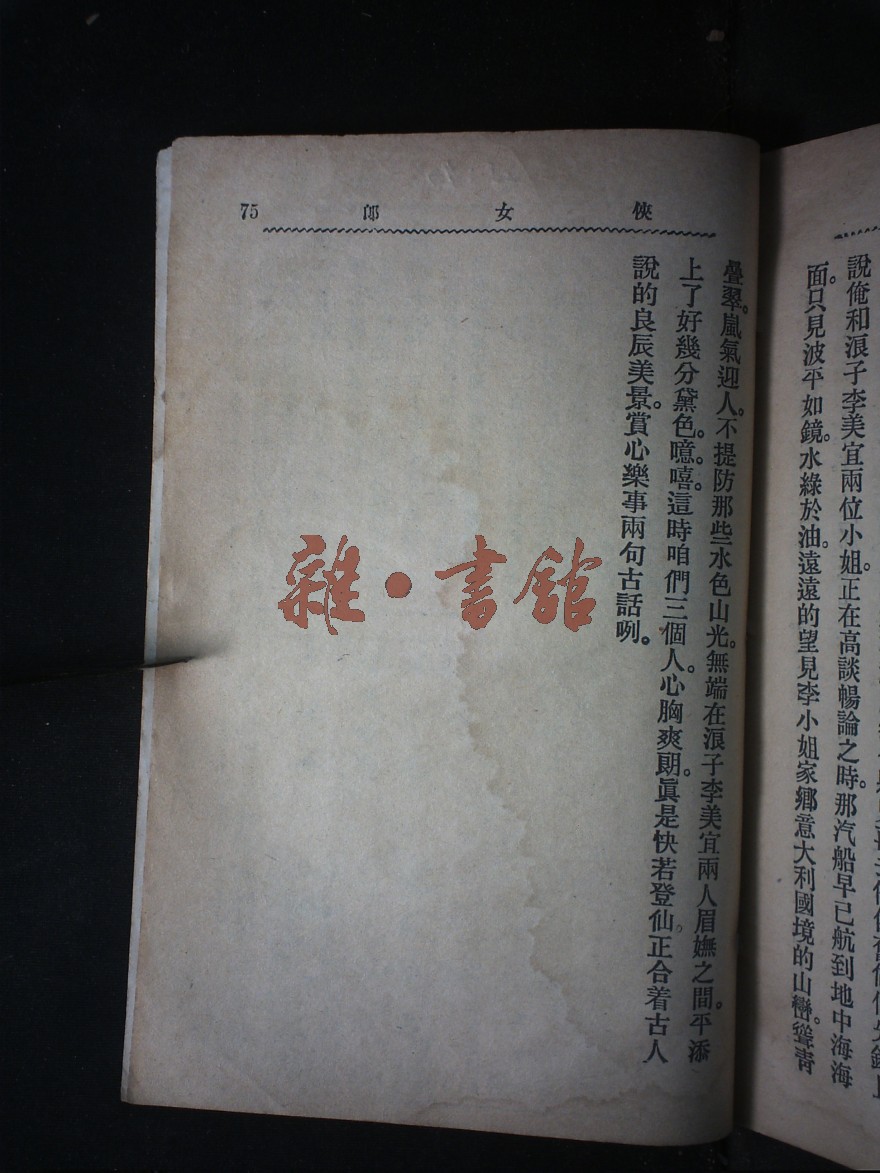 說俺和浪子李美宜兩位小姐。正在高談暢論之時。那汽船早已航到地中海海
面。只見波平如鏡。水綠於油。遠遠的望見李小姐家鄉意大利國境的山巒。聳青
俠女郎
75
疊翠。嵐氣迎人。不提防那些水色山光。無端在浪子李美宜兩人眉嫵之間。平添
上了好幾分黛色。噫嘻。這時咱們三個人。心胸爽朗。眞是快若登仙。正合着古人
說的良辰美景。賞心樂事兩句古話咧。
雜·書館